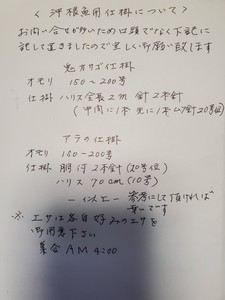 < 沖根魚用仕掛について >
お問い合せが多いため口頭でなく下記に
記して置きましたので宜しく御願い致します
鬼カサゴ仕掛
オモリ 150〜200号
仕掛 ハリス全長2m 針2本針
(中間に1本 先に1本ムツ針20号位)
アラの仕掛
オモリ 180-200号
仕掛 胴付2本針 (20号位)
ハリス 70cm (10号)
参考にして頂ければ
幸いです
※ エサは各自好みのエサを
御用意下さい
集合 AM 4:00